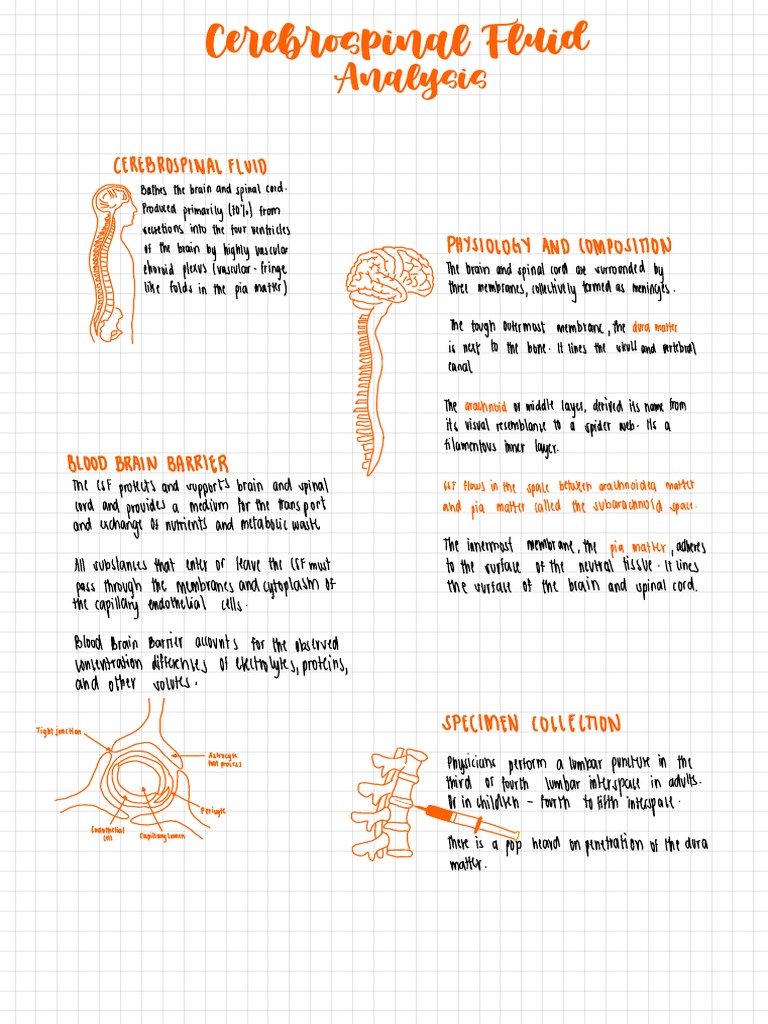 Cerebrospinal Fluid
Analysis
CEREBROSPINAL FLUID
Bathes the brain and spinal cord.
Produced primarily (70%) from
secretions into the four ventricles
of the brain by highly vascular
choroid plexus (vascular-fringe
like folds in the pia matter)
PHYSIOLOGY AND COMPOSITION
The brain and spinal cord are surronded by
three membranes, collectively termed as meninges.
The tough outermost membrane, the dura matter
is next to the bone. It lines the skull and vertebral
canal
The arachnoid or middle layer, derived its name from
its visual resemblance to a spider web. Its a
filamentous inner layer.
CSF flows in the space between arachnoidea matter
and pia matter called the subarachnoid space.
The innermost membrane, the pia matter, adheres
to the surface of the neutral tissue. It lines
the surface of the brain and spinal cord.
BLOOD BRAIN BARRIER
The CSF protects and supports brain and spinal
cord and provides a medium for the transport
and exchange of nutrients and metabolic waste
All substances that enter or leave the CSF must
pass through the membranes and cytoplasm of
the capillary endothelial cells.
Blood Brain Barrier accounts for the observed
concentration differences of electrolytes, proteins,
and other solutes.
Tight junction
Astrocyte
foot process
Pericyte
Endothelial
cell
Capillary lumen
SPECIMEN COLLECTION
Physicians perform a lumbar puncture in the
third or fourth lumbar interspace in adults.
Or in children - fourth to fifth interspace.
There is a pop heard on penetration of the dura
matter.